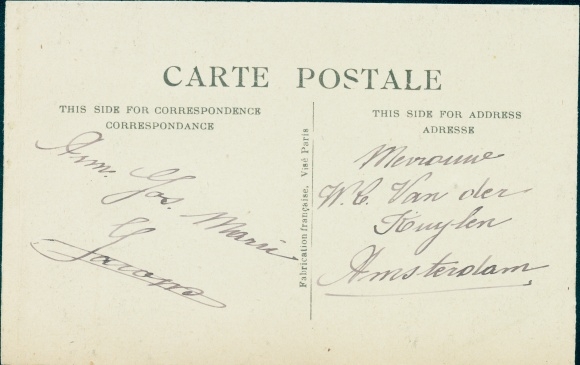 CARTE POSTALE
THIS SIDE FOR CORRESPONDENCE
CORRESPONDANCE
Jos. Marii
Fabrication française, Visé Paris
THIS SIDE FOR ADDRESS
ADRESSE
Mevrouw
W. C. Van der
Kuylen
Amsterdam